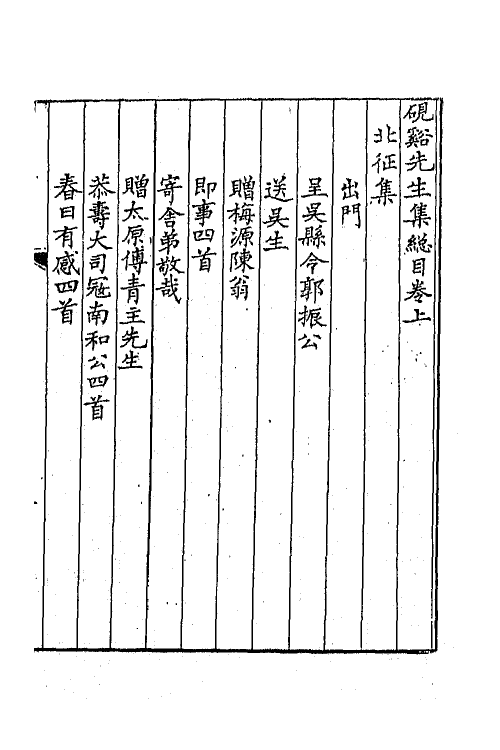 硯谿先生集總目卷上
北征集
出門
呈吳縣令郭振公
送吳生
贈梅源陳翁
即事四首
寄舍弟敬哉
贈太原傅青主先生
恭壽大司寇南和公四首
春日有感四首